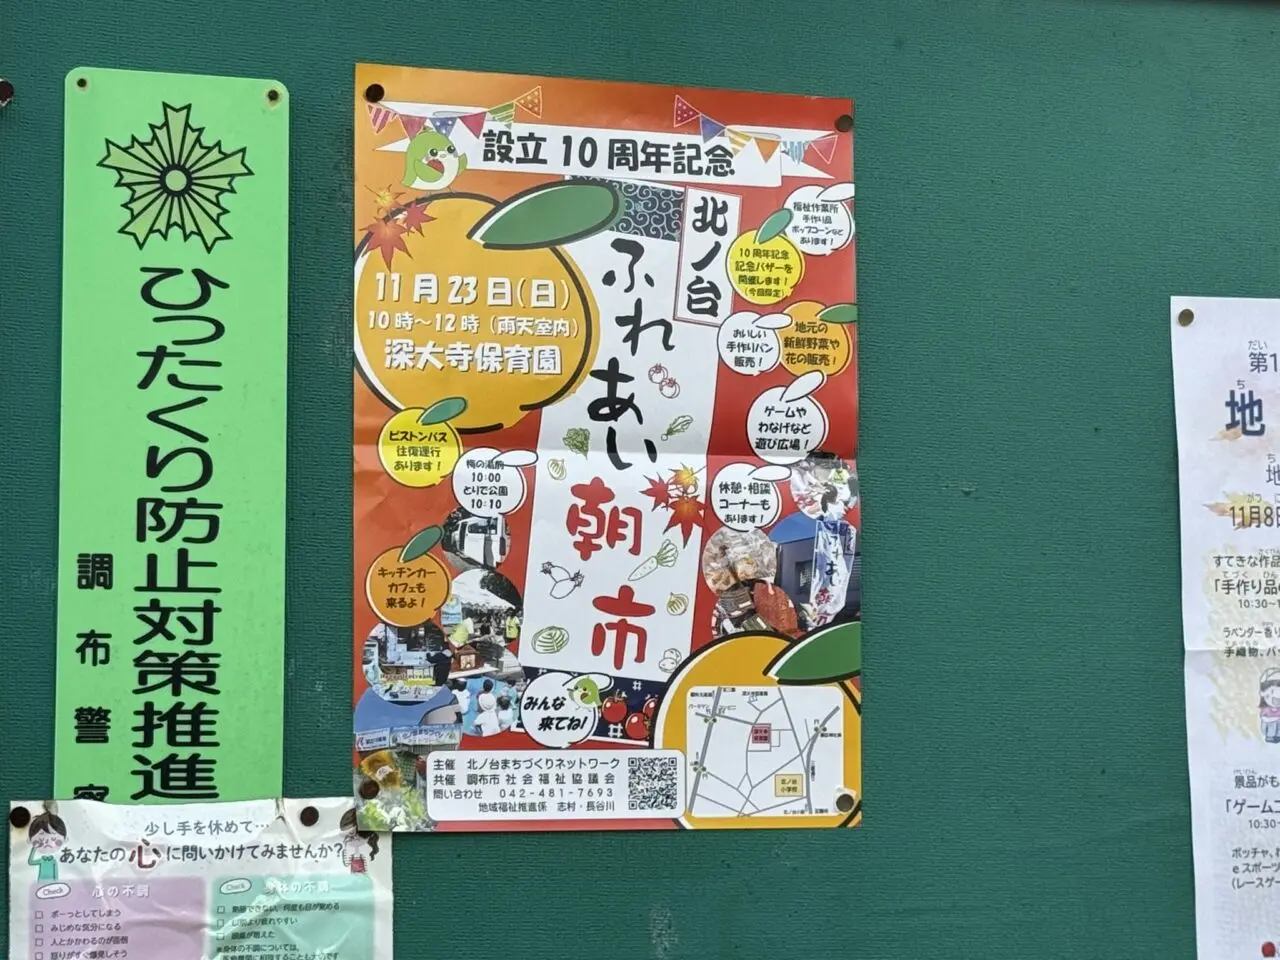 ひったくり防止対策推進
調布警察
設立10周年記念
北ノ台
ふれあい朝市
11月23日(日)
10時～12時（雨天室内）
深大寺保育園
福祉作業所
手作り品
ポップコーンなど
あります！
10周年記念
記念バザーを
開催します！
(今回限定)
おいしい
手作りパン
販売！
地元の
新鮮野菜や
花の販売！
ゲームや
わなげなど
遊び広場！
ピストンバス
往復運行
あります！
梅の湯前
10:00
とりで公園
10:10
休憩・相談
コーナーも
あります！
キッチンカー
カフェも
来るよ！
みんな
来てね！
北ノ台
小学校
主催 北ノ台まちづくりネットワーク
共催 調布市社会福祉協議会
問い合わせ 042-481-7693
地域福祉推進係 志村・長谷川
少し手を休めて…
あなたの心に問いかけてみませんか？
Check 心の不調
ボーっとしてしまう
みじめな気分になる
人とかかわるのが面倒
怒りがすぐ爆発しそう
Check 身体の不調
だい
第1
ち
地
ち
地
がつ
11月8日
すてきな作品
てづく ひん
「手作り品
10:30～1
ラベンダー香り
手織物、バッ
けいひん
景品がも
「ゲームコ
10:30~
ボッチャ、わ
eスポーツ
(レースゲー